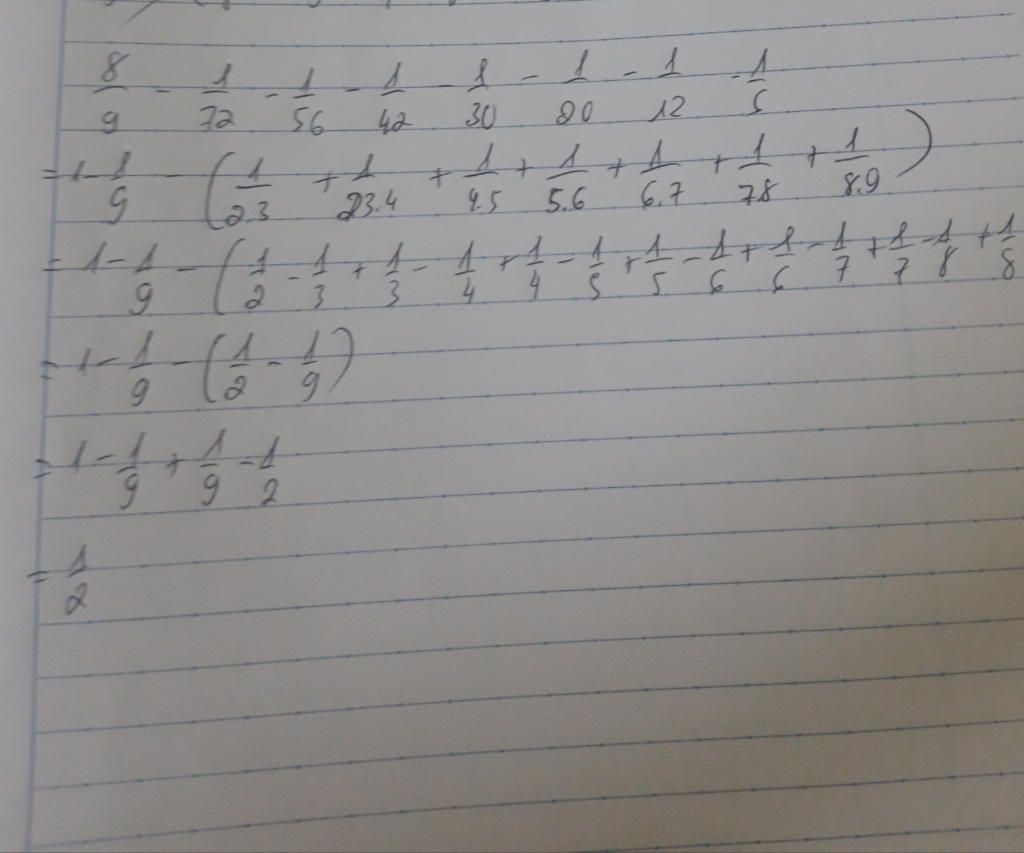 8/9 - 1/72 - 1/56 - 1/42 - 1/30 - 1/20 - 1/12 - 1/6
= 1 - 1/9 - (1/2.3 + 1/3.4 + 1/4.5 + 1/5.6 + 1/6.7 + 1/7.8 + 1/8.9)
= 1 - 1/9 - (1/2 - 1/3 + 1/3 - 1/4 + 1/4 - 1/5 + 1/5 - 1/6 + 1/6 - 1/7 + 1/7 - 1/8 + 1/8
= 1 - 1/9 - (1/2 - 1/9)
= 1 - 1/9 + 1/9 - 1/2
= 1/2